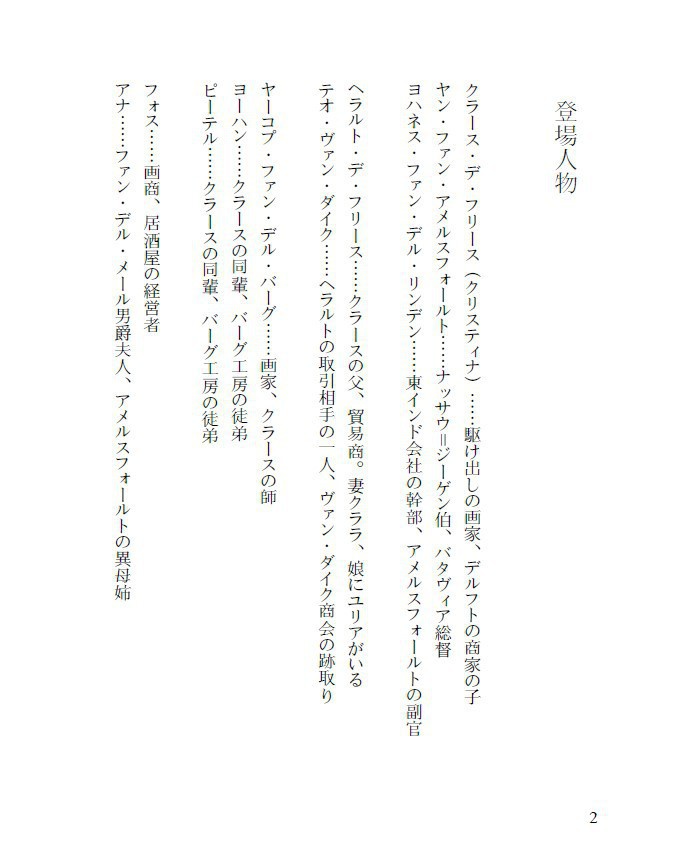 登場人物
クラース・デ・フリース（クリスティナ）……駆け出しの画家、デルフトの商家の子
ヤン・ファン・アメルスフォールト……ナッサウ＝ジーゲン伯、バタヴィア総督
ヨハネス・ファン・デル・リンデン……東インド会社の幹部、アメルスフォールトの副官
ヘラルト・デ・フリース……クラースの父、貿易商。妻クララ、娘にユリアがいる
テオ・ヴァン・ダイク……ヘラルトの取引相手の一人、ヴァン・ダイク商会の跡取り
ヤーコプ・ファン・デル・バーグ……画家、クラースの師
ヨーハン……クラースの同輩、バーグ工房の徒弟
ピーテル……クラースの同輩、バーグ工房の徒弟
フォス……画商、居酒屋の経営者
アナ……ファン・デル・メール男爵夫人、アメルスフォールトの異母姉
2